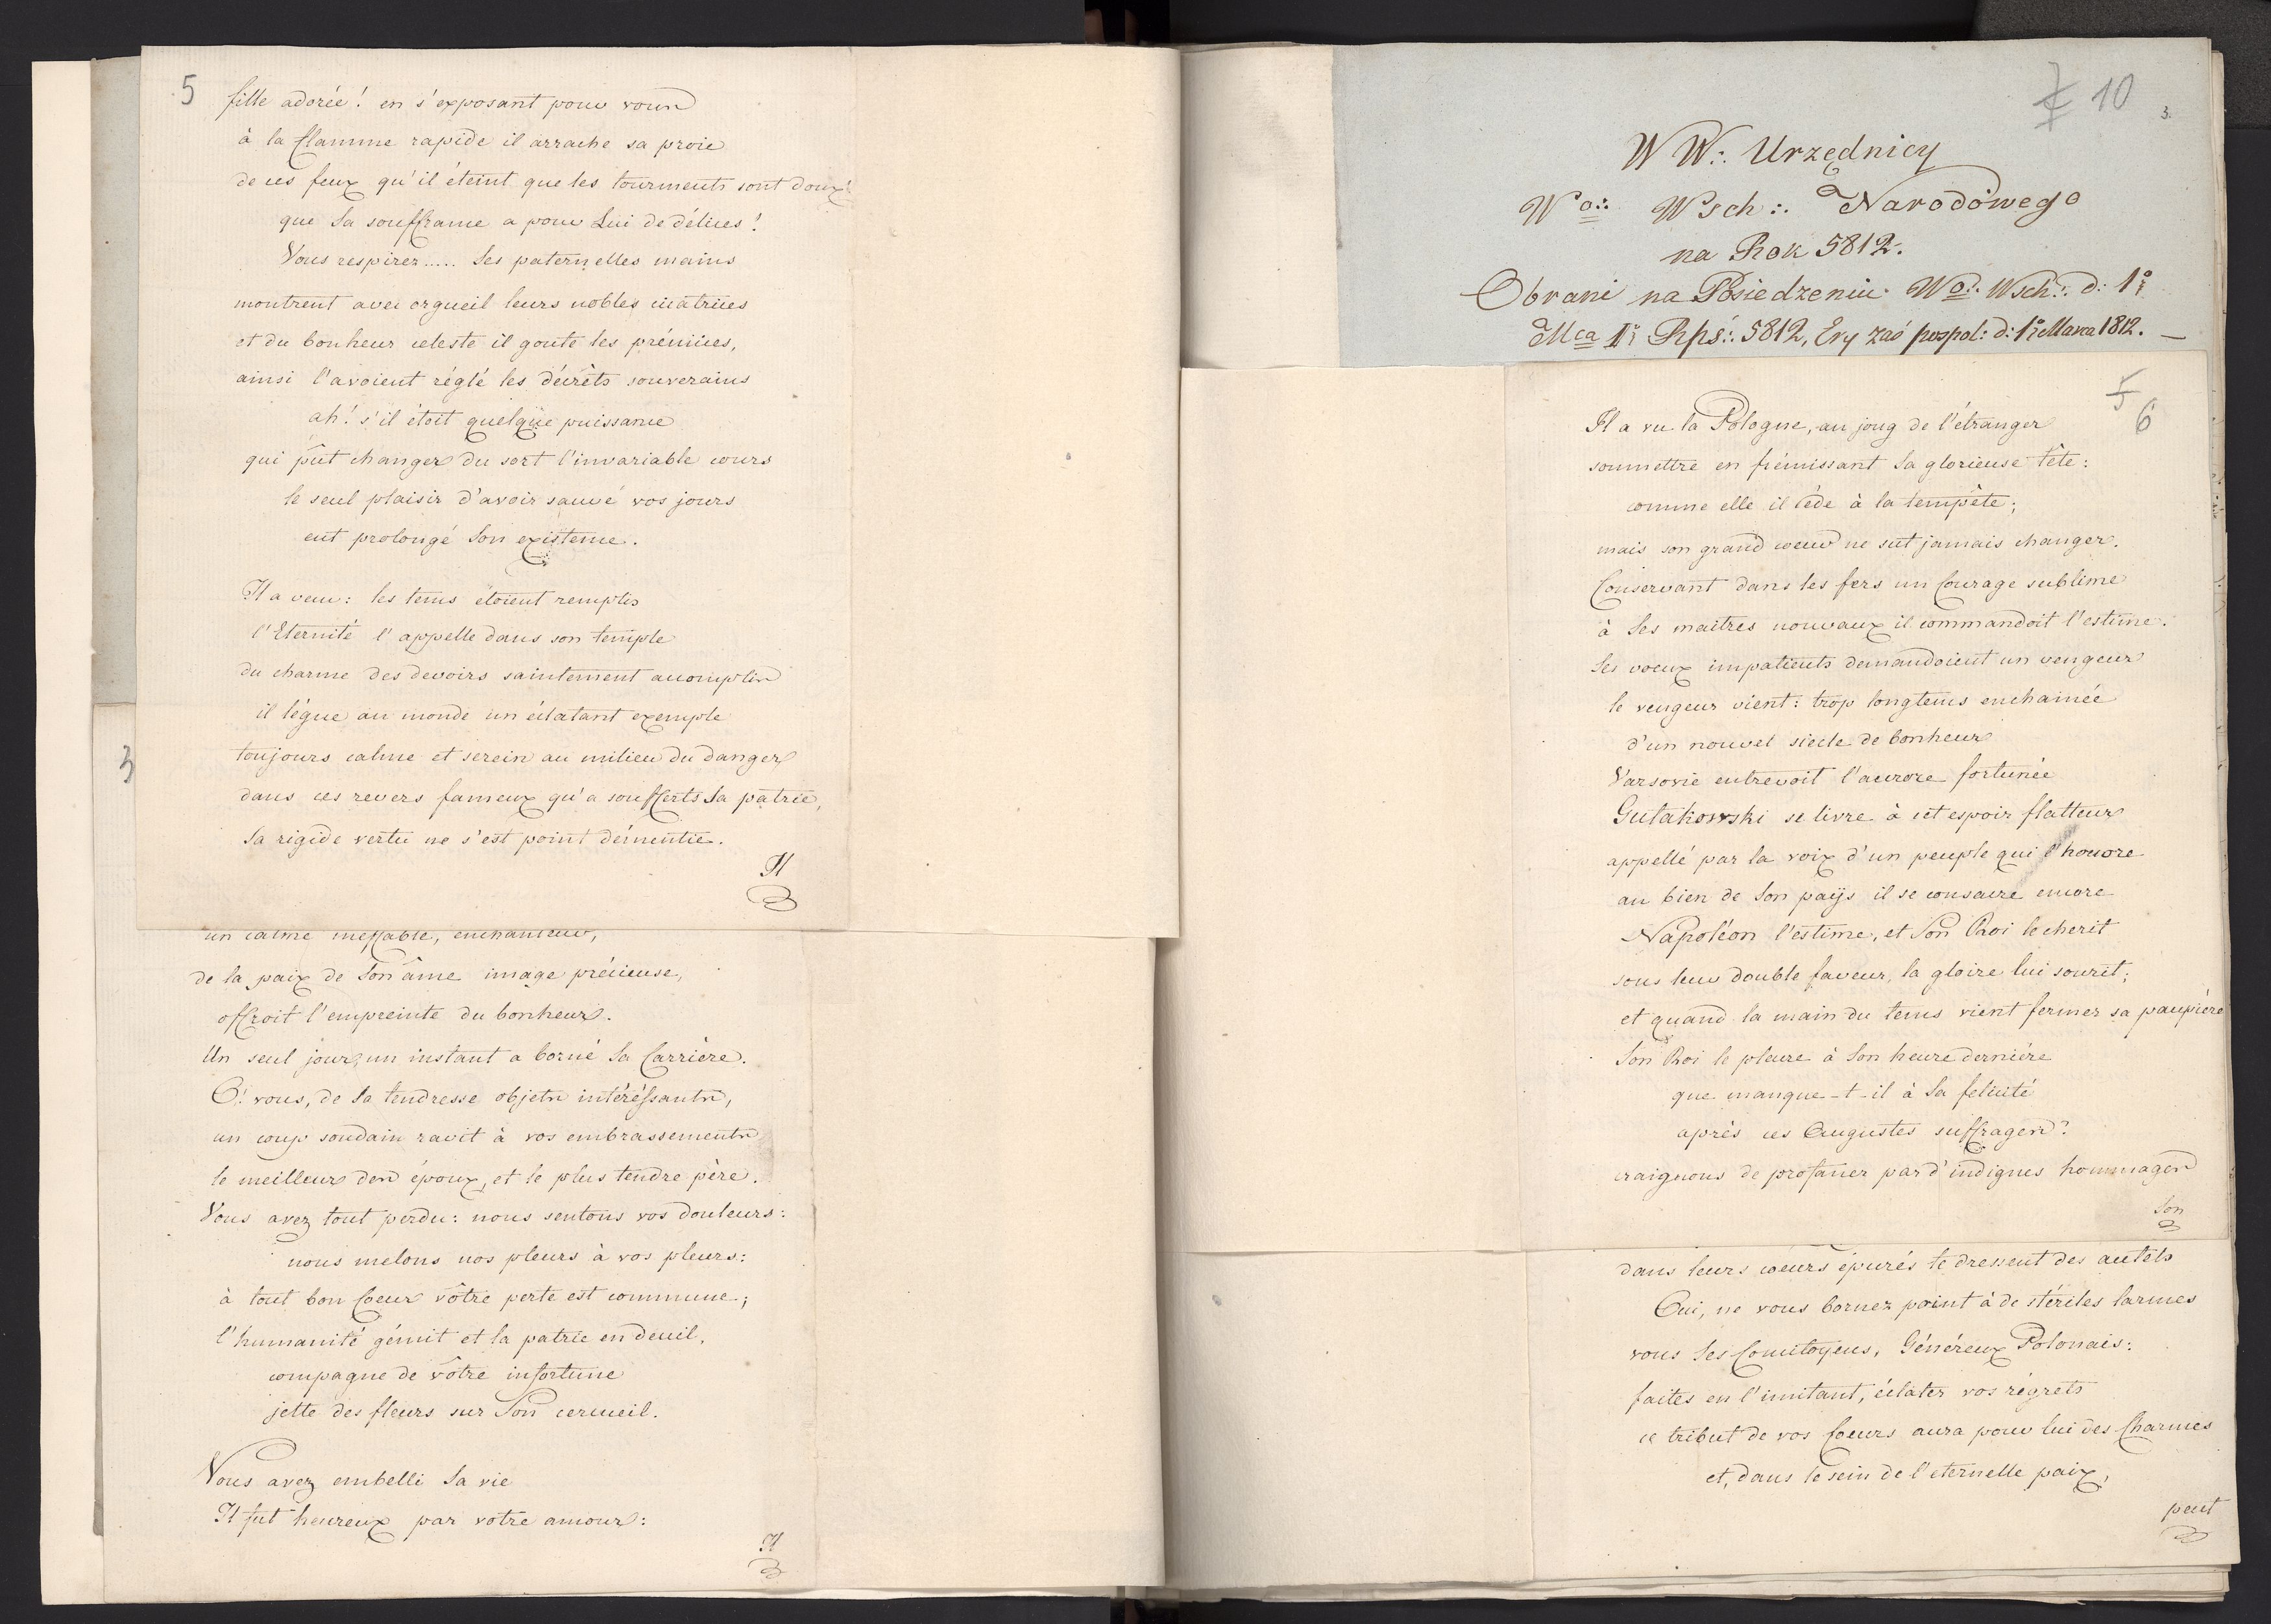 5
fille adorée! en s'exposant pour vous
à la flamme rapide il arrache sa proie
de ces feux qu'il éteint que les tourments sont doux!
que Sa souffrance a pour Lui de délices!
Vous respirez..... Ses paternelles mains
montrent avec orgueil leurs nobles cicatrices
et du bonheur celeste il goute les prémices,
ainsi l'avoient réglé les décrèts souverains
ah! s'il étoit quelque puissance
qui pût changer du sort l'invariable cours
le seul plaisir d'avoir sauvé vos jours
eut prolongé Son existence.
Il a vecu: les tems étoient remplis
l'Eternité l'appelle dans son temple
du charme des devoirs saintement accomplis
il lègue au monde un éclatant exemple
toujours calme et serein au milieu du danger
dans ces revers fameux qu'a soufferts Sa patrie,
Sa rigide vertu ne s'est point démentie.
Il
3
un calme ineffable, enchanteur,
de la paix de Son âme image précieuse,
offroit l'empreinte du bonheur.
Un seul jour, un instant a borné Sa Carrière.
O! vous, de Sa tendresse objets intéréssants,
un coup soudain ravit à vos embrassements
le meilleur des époux, et le plus tendre père.
Vous avez tout perdu: nous sentons vos douleurs:
nous melons nos pleurs à vos pleurs:
à tout bon Coeur vôtre perte est commune;
l'humanité gémit et la patrie en deuil,
compagne de vôtre infortune
jette des fleurs sur Son cercueil.
Vous avez embelli Sa vie
Il fut heureux par votre amour:
Il
10
3.
W W∴ Urzędnicy
Wo∴ Wsch∴ Narodowego
na Rok 5812.
Obrani na Posiedzeniu Wo∴ Wsch∴ d: 1º
Mca 1º Rps∴ 5812, Ery zaś pospol: d: 1º Marca 1812. —
5
6
Il a vu la Pologne, au joug de l'étranger
soumettre en frémissant Sa glorieuse tête:
comme elle il cède à la tempête;
mais son grand coeur ne sut jamais changer.
Conservant dans les fers un Courage sublime
à Ses maitres nouveaux il commandoit l'estime.
Ses voeux impatients demandoient un vengeur
le vengeur vient: trop longtems enchainée
d'un nouvel siecle de bonheur
Varsovie entrevoit l'aurore fortunée
Gutakowski se livre à cet espoir flatteur
appellé par la voix d'un peuple qui l'honore
au bien de Son païjs il se consacre encore
Napoléon l'estime, et Son Roi le cherit
sous leur double faveur, la gloire lui sourit;
et quand la main du tems vient fermer sa paupière
Son Roi le pleure à Son heure dernière
que manque-t-il à Sa felicité
après ces Augustes suffrages?
craignons de profaner par d'indignes hommages
Son
dans leurs coeurs épurés te dressent des autels
Oui, ne vous bornez point à de stériles larmes
vous Ses Concitoyens, Généreux Polonais:
faites en l'imitant, éclater vos régrets
ce tribut de vos Coeurs aura pour lui des Charmes
et, dans le sein de l'eternelle paix,
peut